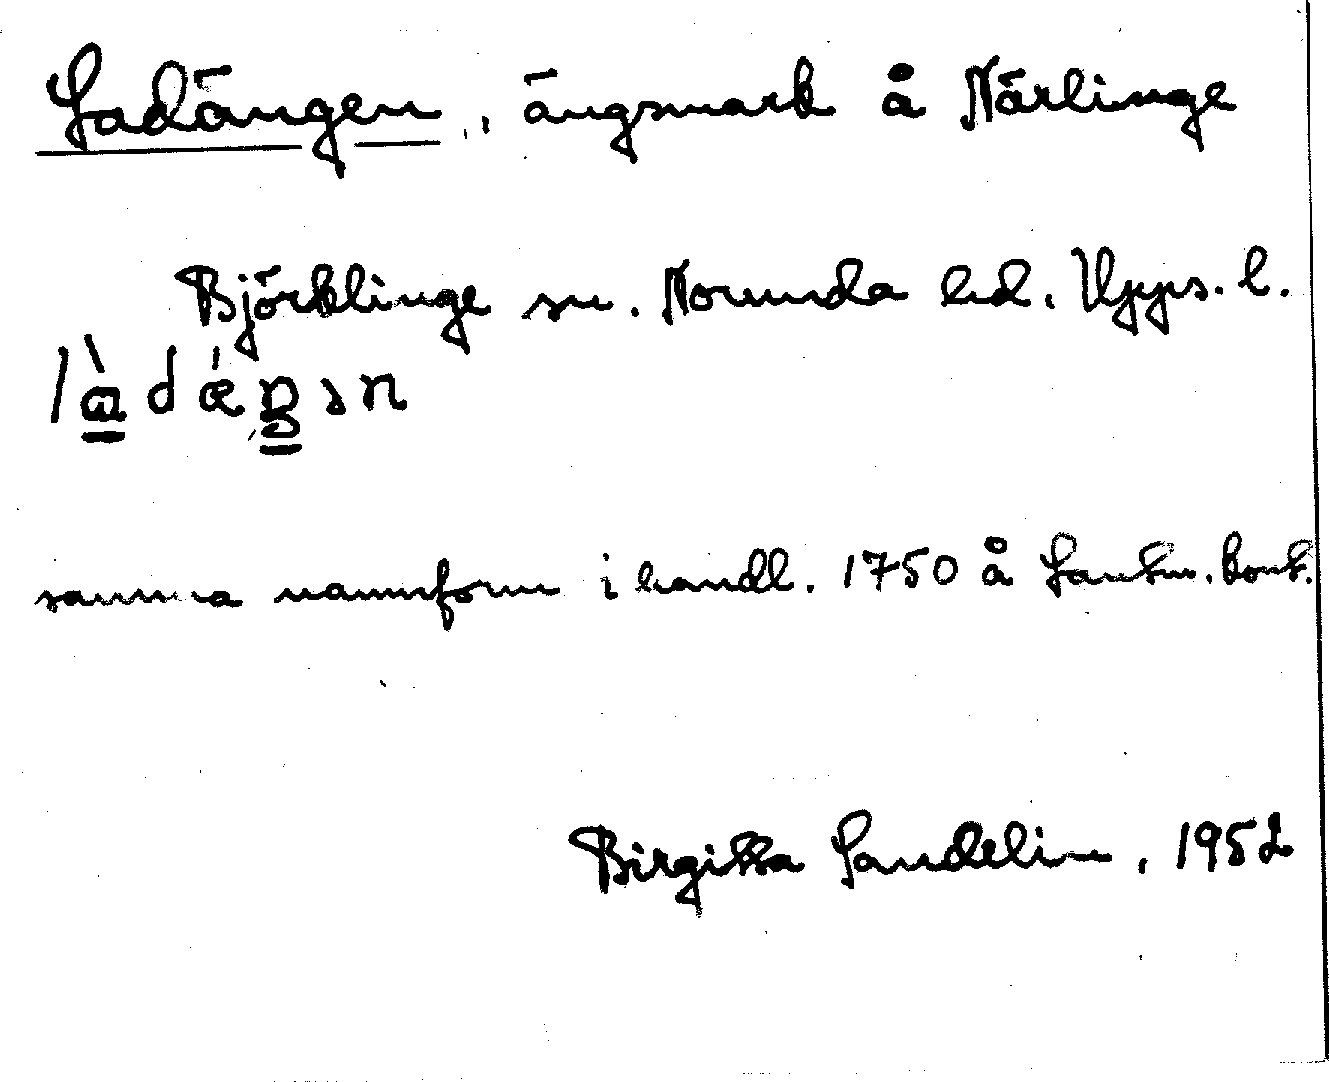 Ladängen, ängsmark å Närlinge
Björklinge sn. Norunda hd. Upps. l.
làdǽŋən
samma namnform i handl. 1750 å Lantm.kont.
Birgitta Sandelin, 1952